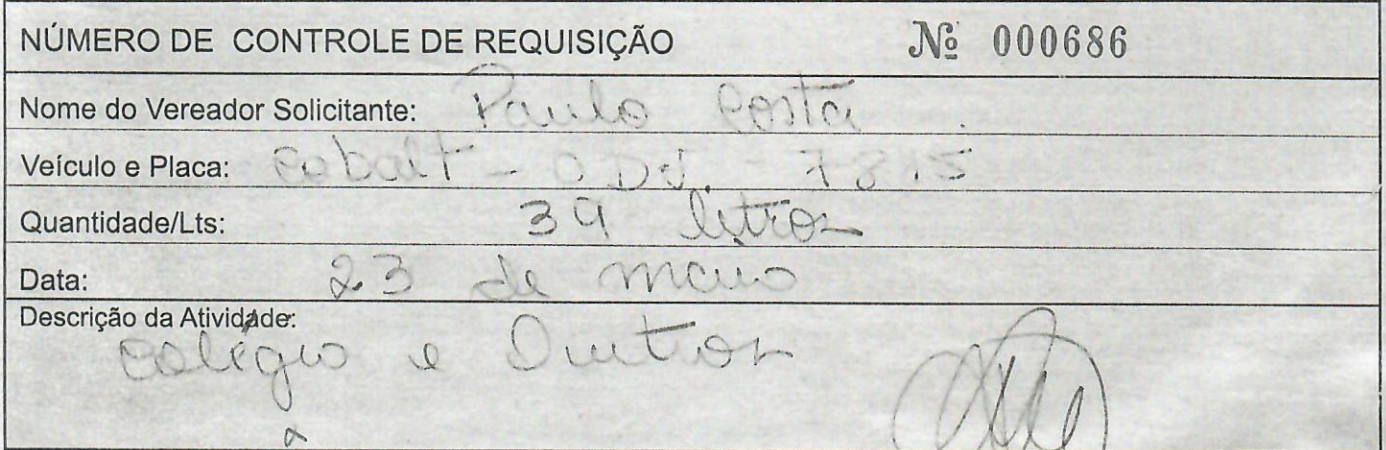 NÚMERO DE CONTROLE DE REQUISIÇÃO Nº 000686
Nome do Vereador Solicitante: Paulo Costa
Veículo e Placa: Cobalt - ODJ. 7815
Quantidade/Lts: 39 litros
Data: 23 de maio
Descrição da Atividade:
Colégio e Outros